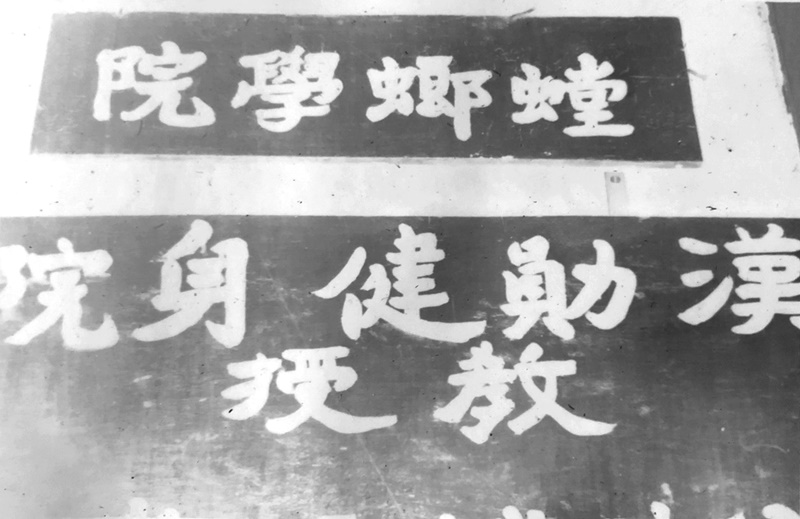 螳螂學院
漢勛健身院
教授